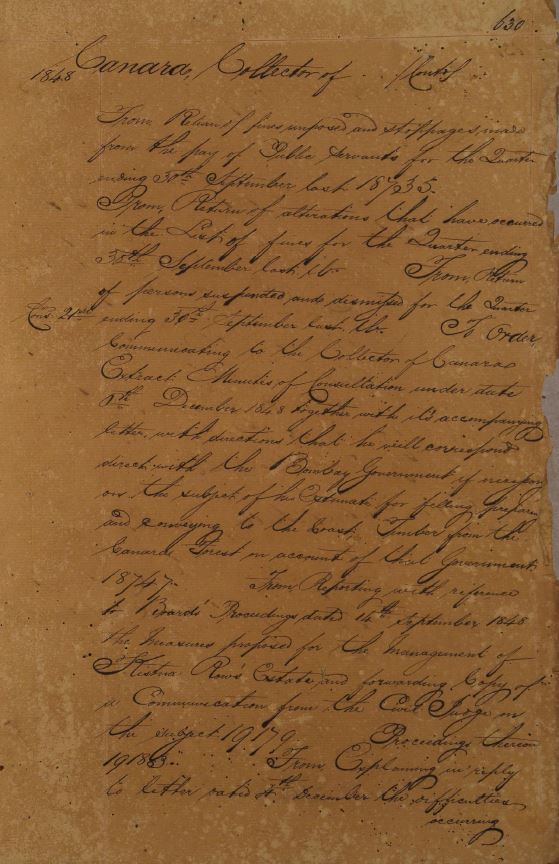 630
1848 Canara, Collector of (Contd)
From Return of fines imposed and stoppages made
from the pay of Public Servants for the Quarter
ending 30th September last 18735.
From, Return of alterations that have occurred
in the List of fines for the Quarter ending
30th September last, ib. From, Return
of persons suspended and dismissed for the Quarter
Cons. 21st ending 30th September last. ib. To Order,
Communicating to the Collector of Canara
Extract Minutes of Consultation under date
December 1848 together with its accompanying
letter, with directions that he will correspond
direct with the Bombay Government if necessary
on the subject of his Estimate for felling, preparing
and conveying to the Coast Timber from the
Canara Forest on account of that Government
18747. From Reporting with reference
to Board's Proceedings dated 14th September 1848
the measures proposed for the management of
Kistna Row's Estate, and forwarding Copy of
a Communication from the Civil Judge on
the subject 19179. Proceedings thereon
19183. From Explaining in reply
to letter dated 4th December the difficulties
occurring